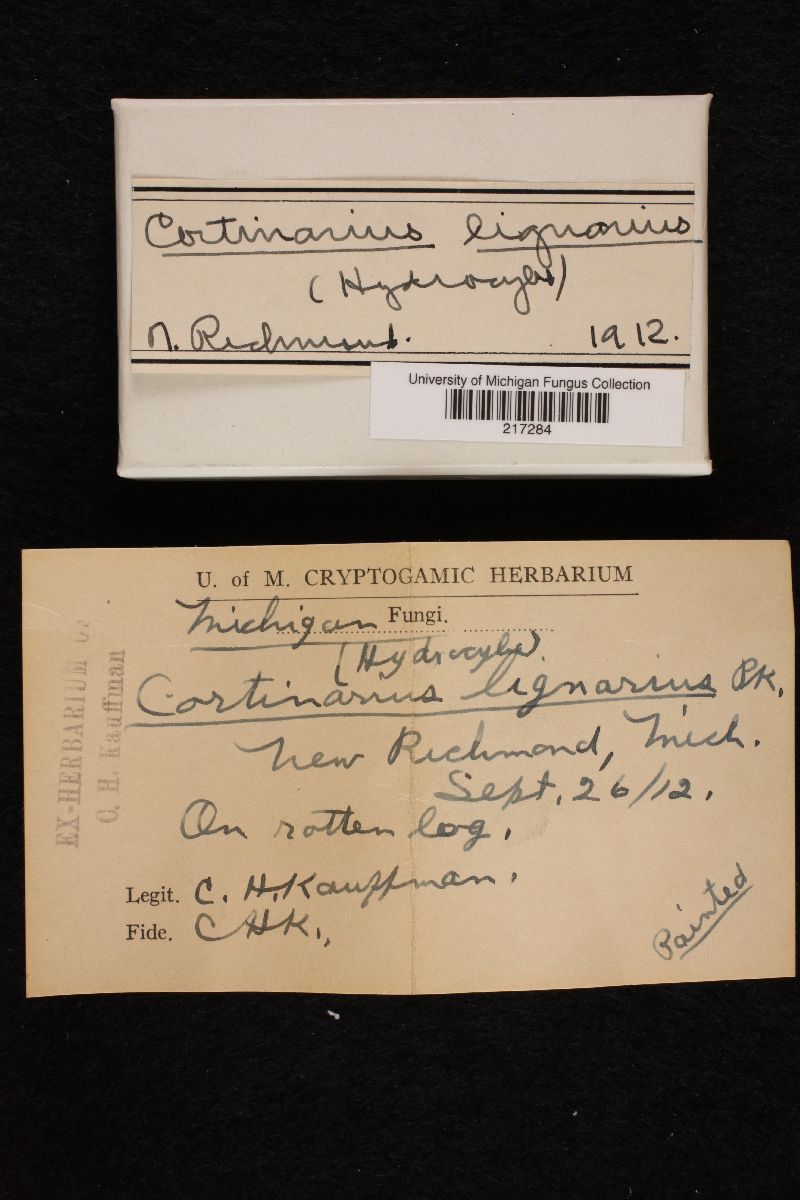 Cortinarius lignarius
(Hydrocybe)
N. Richmond. 1912.
University of Michigan Fungus Collection
217284
U. of M. CRYPTOGAMIC HERBARIUM
Michigan Fungi.
(Hydrocybe)
Cortinarius lignarius Pk.
New Richmond, Mich.
Sept. 26/12.
On rotten log.
Legit. C. H. Kauffman.
Fide. CHK.,
Painted
EX-HERBARIUM OF
C. H. Kauffman